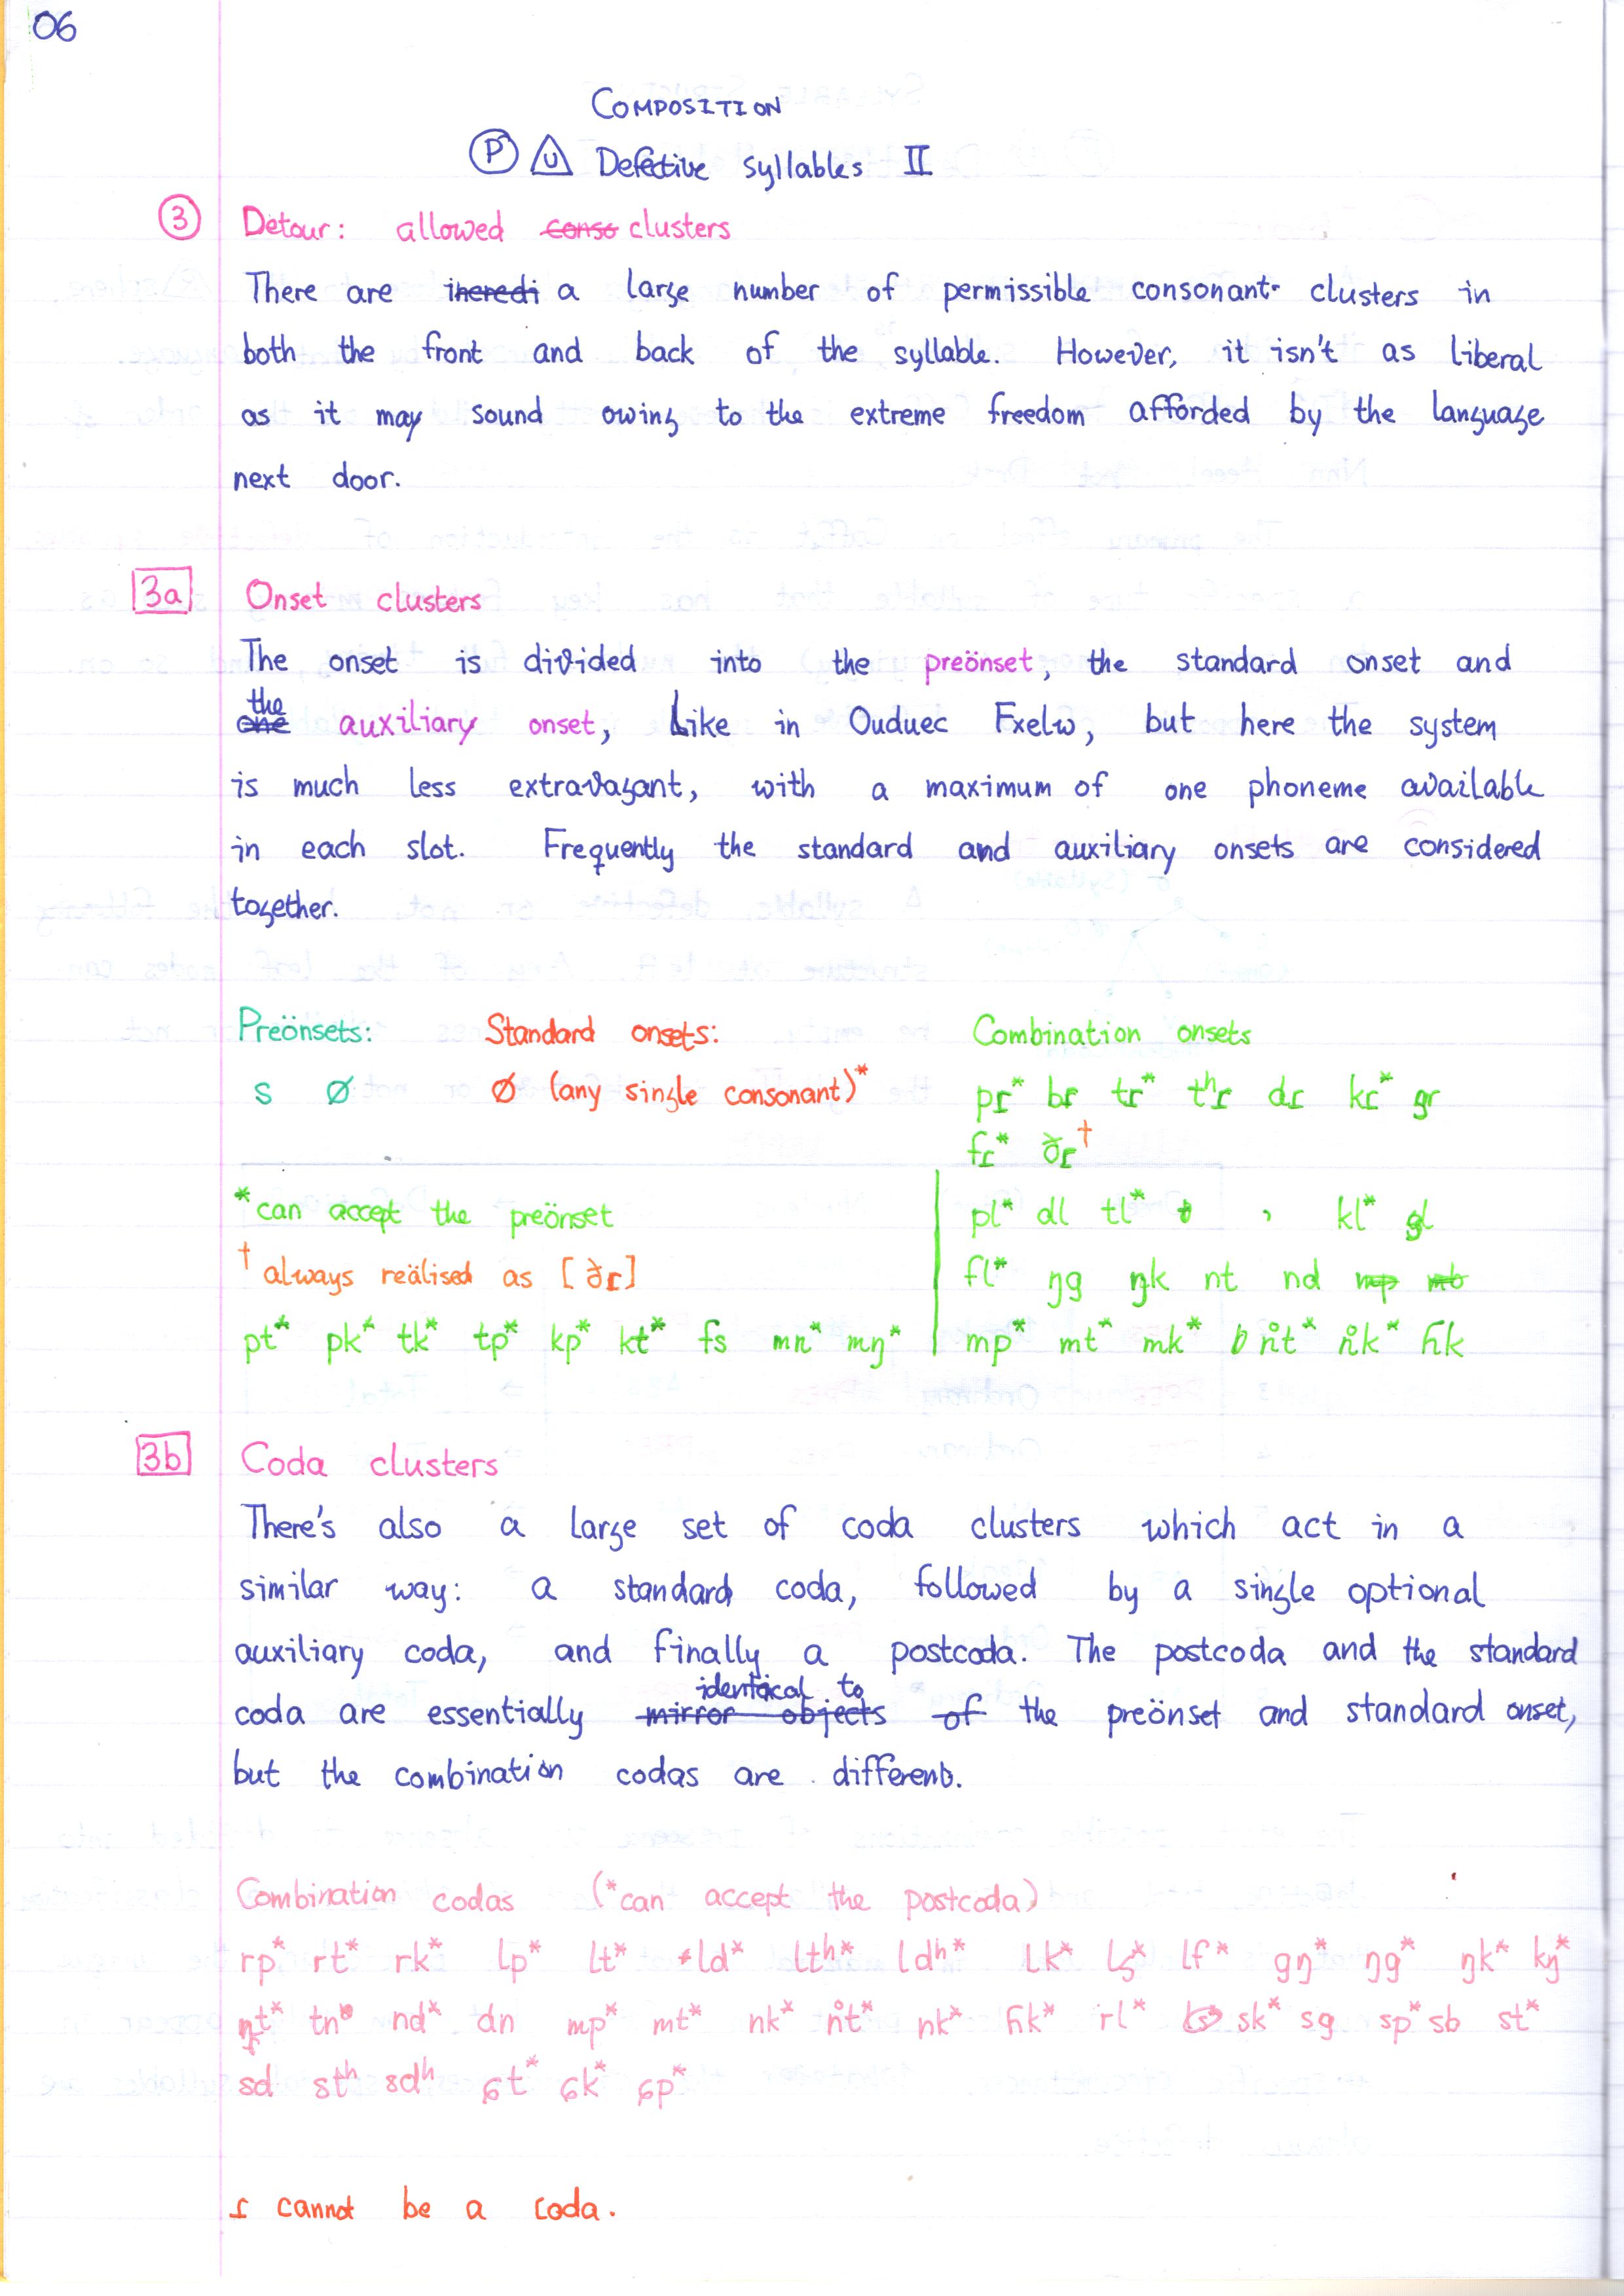 06
COMPOSITION
P U Defective syllables II
3 Detour: allowed conso clusters
There are incredi a large number of permissible consonant clusters in
both the front and back of the syllable. However, it isn't as liberal
as it may sound owing to the extreme freedom afforded by the language
next door.
3a Onset clusters
The onset is divided into the preönset, the standard onset and
the
one auxiliary onset, Like in Ouduec Fxelw, but here the system
is much less extravagant, with a maximum of one phoneme available
in each slot. Frequently the standard and auxiliary onsets are considered
together.
Preönsets: Standard onsets: Combination onsets
s Ø Ø (any single consonant)* pɾ* bɾ tɾ* tʰɾ dɾ kɾ* gɾ
fɾ* ðɾ†
*can accept the preönset pl* dl tl* kl* gl
† always reälised as [ðɾ] fl* ŋg ŋk nt nd mp mb
pt* pk* tk* tp* kp* kt* fs mn* mŋ* mp* mt* mk* n̊t* n̊k* ɦk
3b Coda clusters
There's also a large set of coda clusters which act in a
similar way: a standard coda, followed by a single optional
auxiliary coda, and finally a postcoda. The postcoda and the standard
identical to
coda are essentially mirror objects of the preönset and standard onset,
but the combination codas are different.
Combination codas (*can accept the postcoda)
rp* rt* rk* lp* lt* ld* ltʰ* ldʰ* lk* lg* lf* gŋ* ŋg* ŋk* kŋ*
nt* tn nd* dn mp* mt* nk* n̊t* nk* ɦk* rl* sk* sg sp* sb st*
sd stʰ sdʰ ɕt* ɕk* ɕp*
ɾ cannot be a coda.